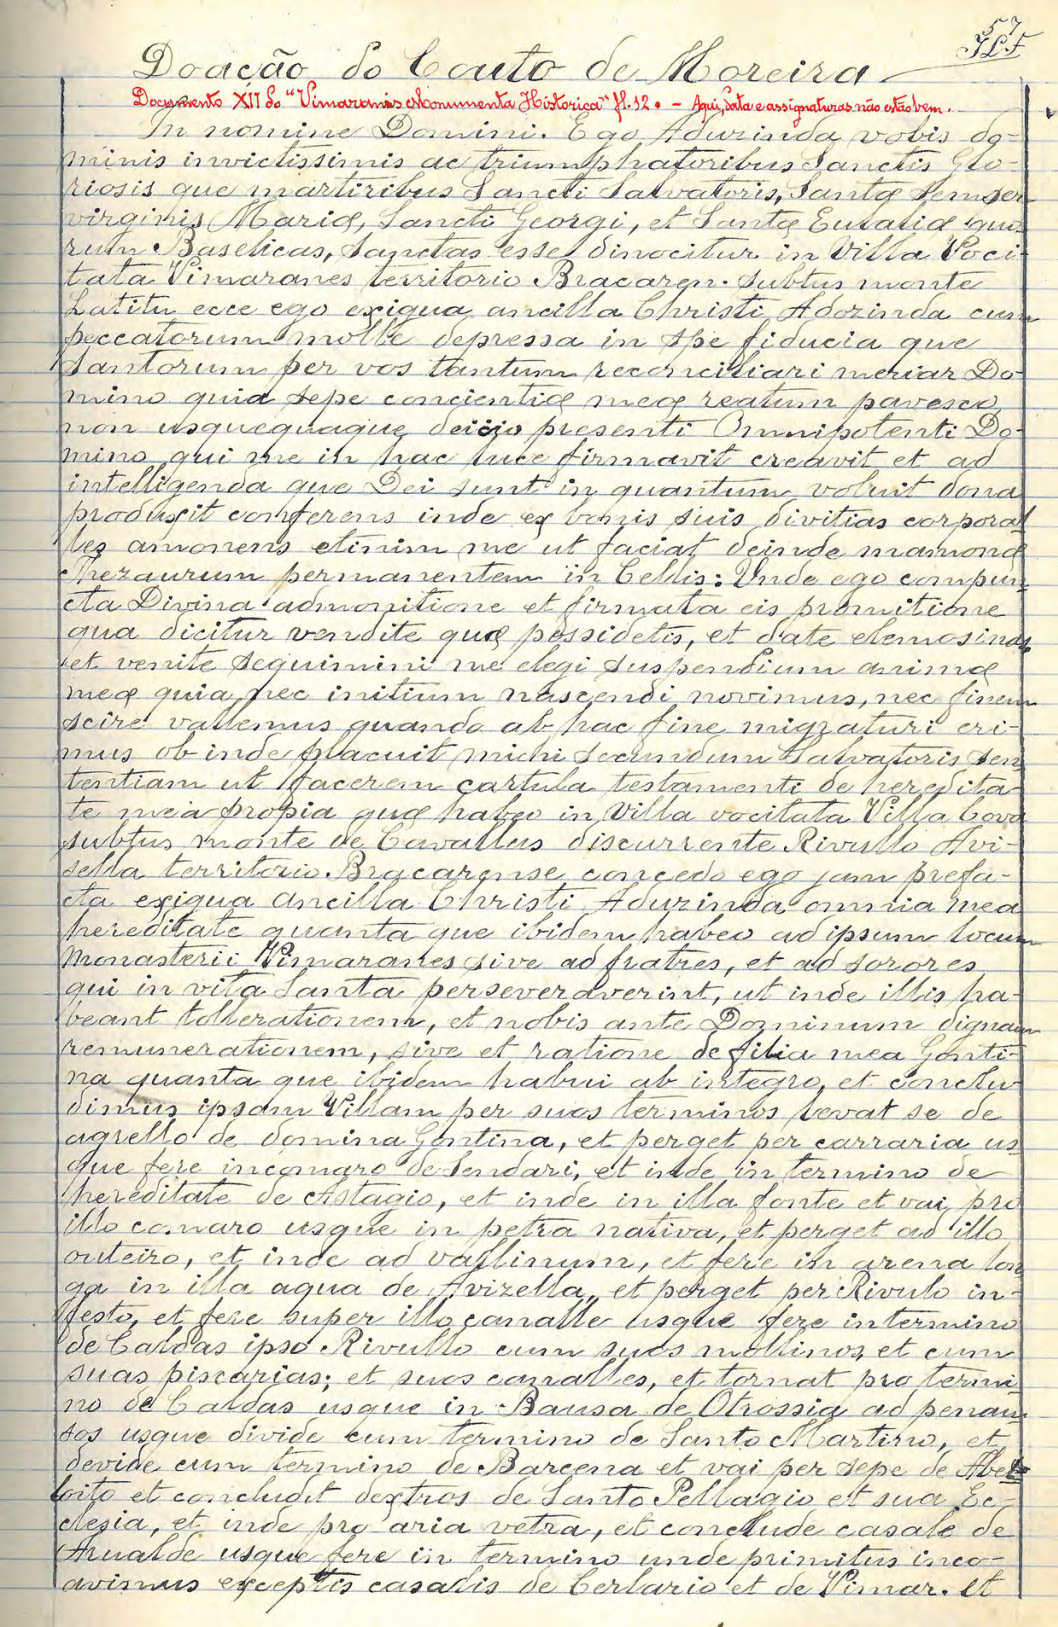 57
Doação do Couto de Moreira
Documento XII do "Vimaranis Monumenta Historica" fl. 12. - Aqui, data e assignaturas não estão bem.
In nomine Domini. Ego Aduzinda vobis do-
minis invictissimis ac triumphatoribus Sanctis Glo-
riosis que martiribus Sancti Salvatoris, Santæ Semper
virginis Mariæ, Sancti Georgi, et Santæ Eulaliæ quo
rum Baselicas, Sanctas esse dinocitur in Villa Voci-
tata Vimaranes territorio Bracaren. Subtus monte
Latitu ecce ego exigua ancilla Christi Adozinda cum
peccatorum molle depressa in spe fiducia que
Santorum per vos tantum reconciliari meriar Do-
mino quia sepe concientiæ meæ reatum pavesco
non usquequaque deicio presenti Omnipotenti Do-
mino qui me in hac luce firmavit creavit et ad
intelligenda que Dei sunt in quantum voluit dona
produxit conferens inde ex bonis suis divitias corpora
les amonens etinim me ut faciat deinde mamonæ
thezaurum permanentem in Cellis: Unde ego compun
cta Divina admonitione et firmata eis promitione
qua dicitur vendite quæ possidetis, et date elemosinas
et venite sequimini me elegi suspendium animæ
meæ quia nec initium nascendi novimus, nec finem
scire vallemus quando ab hac fine migraturi eri-
mus ob inde placuit michi secundum Salvatoris Sen
tentiam ut facerem cartula testamenti de heredita-
te mea propia quæ habeo in Villa vocitata Villa Cova
subtus monte de Cavallus discurrente Rivullo Avi-
sella territorio Bracarense concedo ego jam prefa-
cta exigua ancilla Christi Aduzinda omnia mea
hereditate quanta que ibidem habeo ad ipsum locum
Monasterii Vimaranes sive ad fratres, et ad sorores
qui in vita Santa perseveraverint, ut inde illis ha-
beant tollerationem, et nobis ante Dominum dignam
remunerationem, sive et ratione de filia mea Gonti-
na quanta que ibidem habui ab integro, et conclu-
dimus ipsam Villam per suos terminos levat se de
agrello de domina Gontina, et perget per carraria us
que fere incomaro de Sendari, et inde in termino de
hereditate de Astagio, et inde in illa fonte et vai pro
illo comaro usque in petra nativa, et perget ad illo
outeiro, et inde ad vallinum, et fere in arena lon
ga in illa aqua de Avizella, et perget per Rivulo in-
festo, et fere super illo canalle usque fere in termino
de Caldas ipso Rivullo cum suos mollinos et cum
suas piscarias; et suos canalles, et tornat pro termi-
no de Caldas usque in Bausa de Otrossia ad penam
sos usque divide cum termino de Santo Martino, et
devide cum termino de Barcena et vai per sepe de Abel
loito et concludit dextros de Santo Pellagio et sua Ec-
clesia, et inde pro aria vetra, et conclude casale de
Arualde usque fere in termino unde primitus inco-
avimus exceptis casalis de Cerlario et de Vimar. et